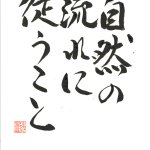 自然の
流れに
従うこと